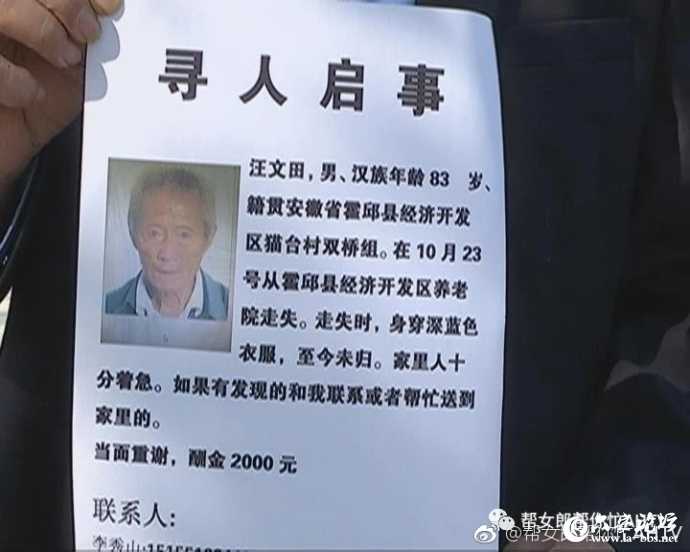 寻人启事
汪文田，男、汉族年龄 83 岁、
籍贯安徽省霍邱县经济开发
区猫台村双桥组。在 10 月 23
号从霍邱县经济开发区养老
院走失。走失时，身穿深蓝色
衣服，至今未归。家里人十
分着急。如果有发现的和我联系或者帮忙送到
家里的。
当面重谢，酬金 2000 元
联系人：
李秀山:
帮女郎帮你忙
@帮女郎
六安论坛
www.la-bbs.net